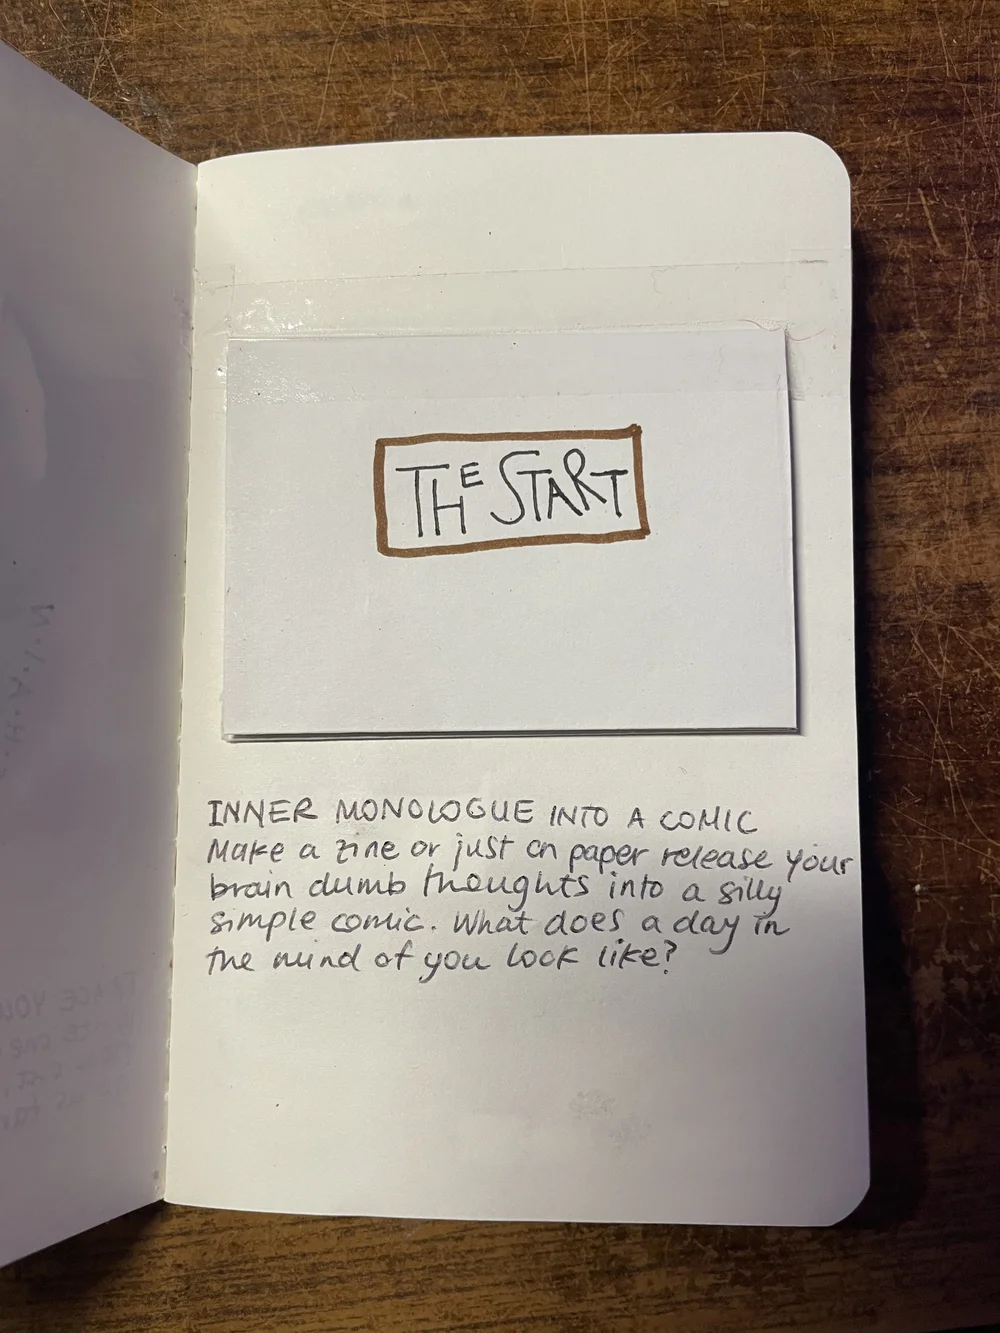 THE START
INNER MONOLOGUE INTO A COMIC
Make a zine or just on paper release your
brain dumb thoughts into a silly
simple comic. What does a day in
the mind of you look like?